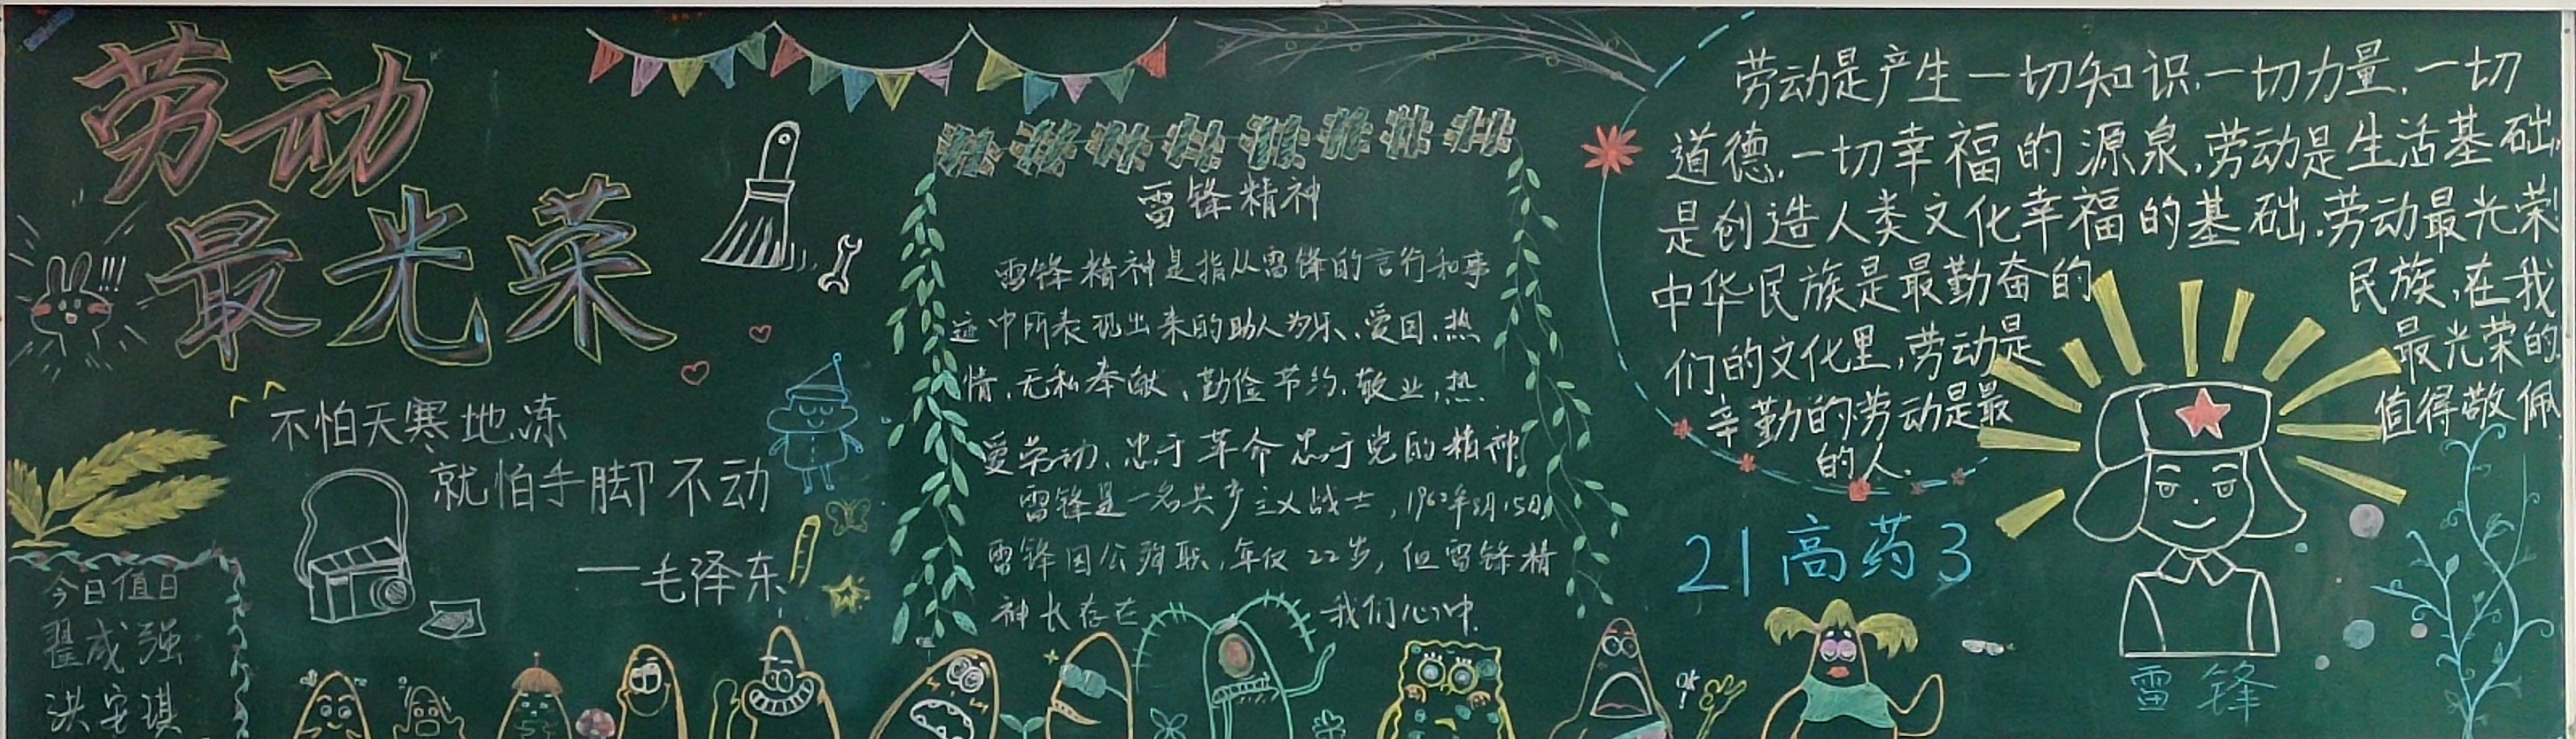 劳动
最光荣
!!!
不怕天寒地冻
就怕手脚不动
——毛泽东
今日值日
翟成强
洪安琪
雷锋精神
雷锋精神是指从雷锋的言行和事
迹中所表现出来的助人为乐、爱国、热
情、无私奉献、勤俭节约、敬业、热
爱劳动、忠于革命忠于党的精神
雷锋是一名共产主义战士，1962年8月15日
雷锋因公殉职，年仅22岁，但雷锋精
神长存在我们心中.
劳动是产生一切知识、一切力量、一切
道德、一切幸福的源泉,劳动是生活基础,
是创造人类文化幸福的基础.劳动最光荣!
中华民族是最勤奋的民族,在我
们的文化里,劳动是最光荣的
辛勤的劳动是最值得敬佩
的人.
21高药3
OK!
雷锋